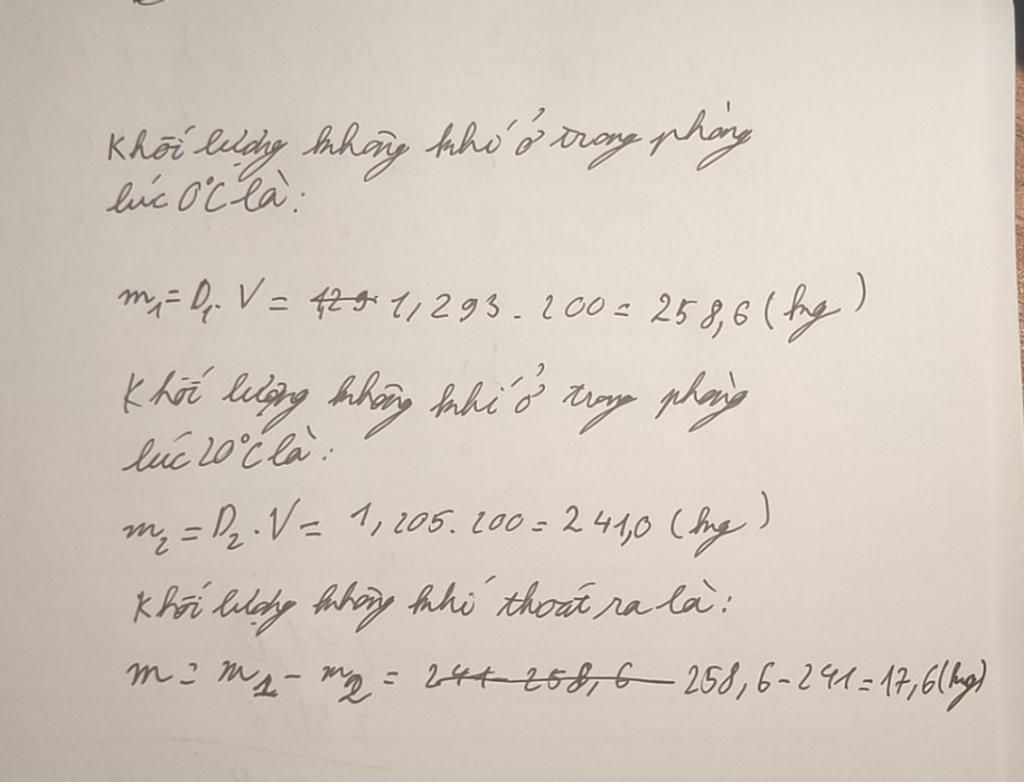 Khối lượng không khí ở trong phòng
lúc 0°C là:
m₁ = D₁. V = 1,293 . 200 = 258,6 (kg)
Khối lượng không khí ở trong phòng
lúc 20°C là:
m₂ = D₂ . V = 1,205 . 200 = 241,0 (kg)
Khối lượng không khí thoát ra là:
m = m₁ - m₂ = 241 - 258,6 258,6 - 241 = 17,6 (kg)